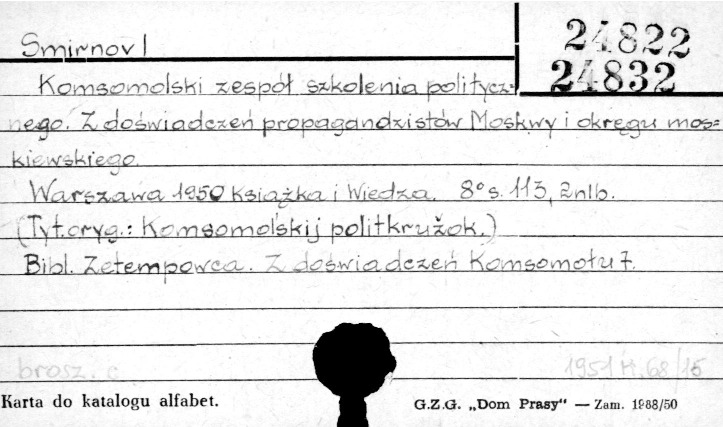 Smirnov I
24822
24832
Komsomolski zespół szkolenia politycz-
nego. Z doświadczeń propagandzistów Moskwy i okręgu mos=
kiewskiego.
Warszawa 1950 Książka i Wiedza. 8° s. 113, 2 nlb.
(Tyt. oryg.: Komsomol'skij politkružok.)
Bibl. Zetempowca. Z doświadczeń Komsomołu 7.
brosz. c
1951 H. 68/15
Karta do katalogu alfabet.
G.Z.G. „Dom Prasy" — Zam. 1988/50